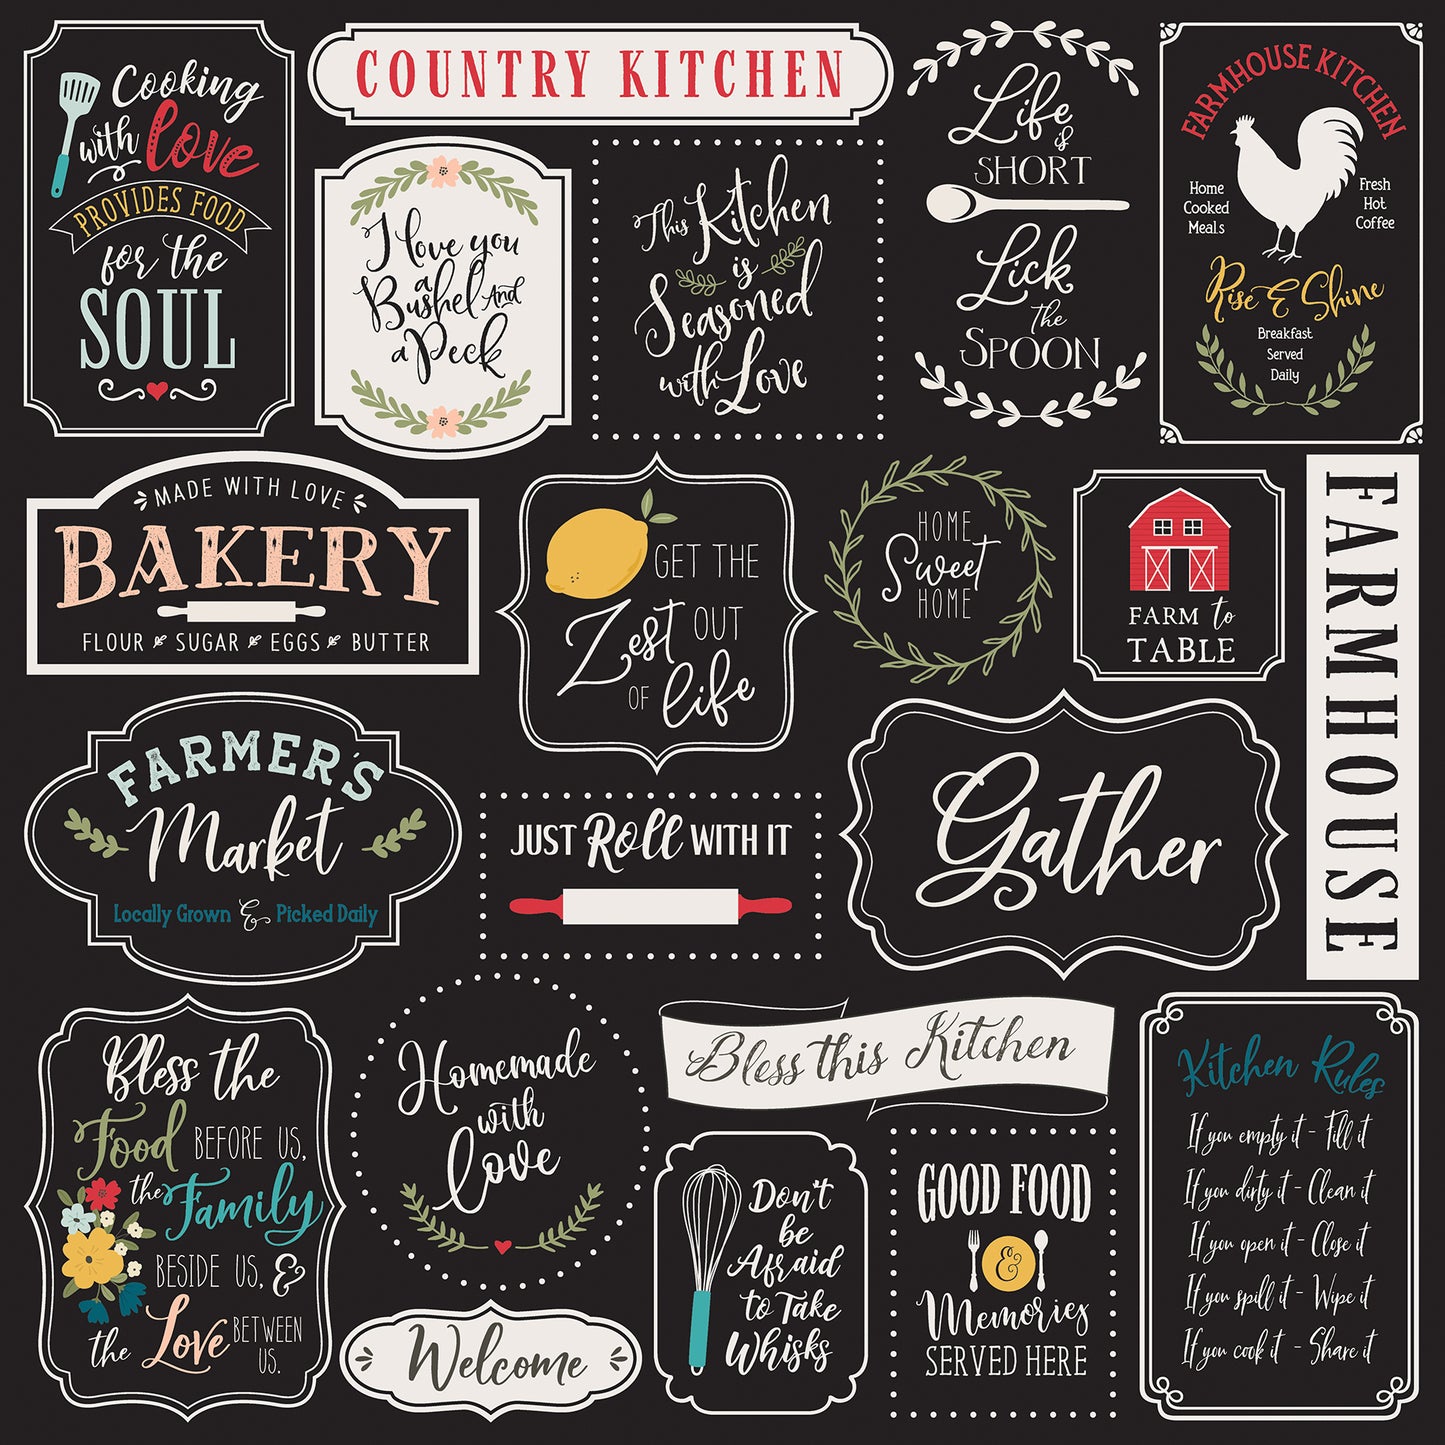 Cooking
with love
PROVIDES FOOD
for the
SOUL
COUNTRY KITCHEN
I love you
a
Bushel And
a Peck
This Kitchen
is
Seasoned
with Love
Life
is
SHORT
Lick
the
SPOON
FARMHOUSE KITCHEN
Home
Cooked
Meals
Fresh
Hot
Coffee
Rise & Shine
Breakfast
Served
Daily
MADE WITH LOVE
BAKERY
FLOUR SUGAR EGGS BUTTER
GET THE
Zest OUT
OF life
HOME
Sweet
HOME
FARM to
TABLE
FARMHOUSE
FARMER'S
Market
Locally Grown & Picked Daily
JUST Roll WITH IT
Gather
Bless the
Food BEFORE US,
the Family
BESIDE US, &
the Love BETWEEN
US.
Homemade
with
love
Bless this Kitchen
Welcome
Don't
be
Afraid
to Take
Whisks
GOOD FOOD
&
Memories
SERVED HERE
Kitchen Rules
If you empty it - Fill it
If you dirty it - Clean it
If you open it - Close it
If you spill it - Wipe it
If you cook it - Share it